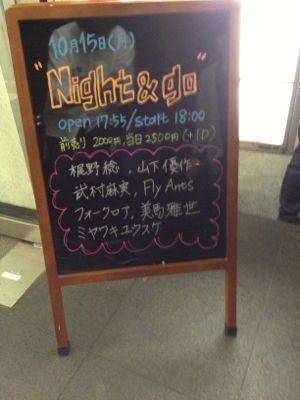 10月15日(月)
"Night & go"
open 17:55/start 18:00
前売り 2000円,当日2500円(+1D)
梶野稔,山下優作
武村麻実,Fly Ants
フォークロア,美馬雅世
ミヤワキユウスケ